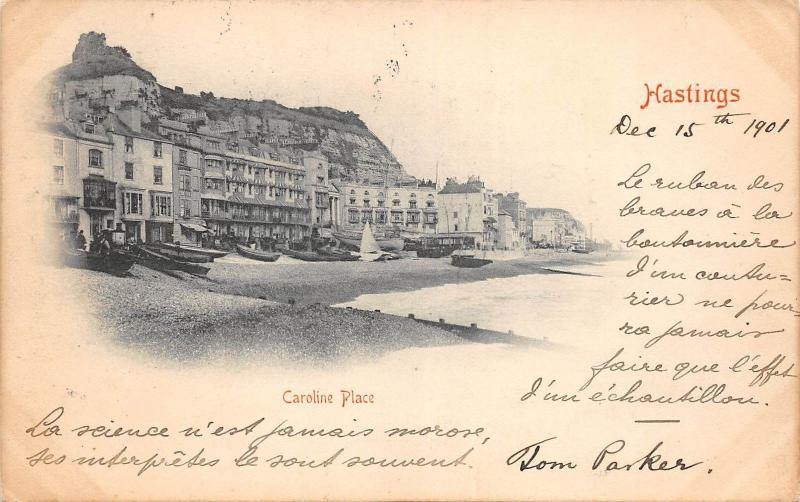 Hastings
Dec 15th 1901
Le ruban des
braves à la
boutonnière
d'un coutu-
rier ne pour-
ra jamais
faire que l'effet
d'un échantillon.
Caroline Place
La science n'est jamais morose,
ses interprètes le sont souvent.
Tom Parker.